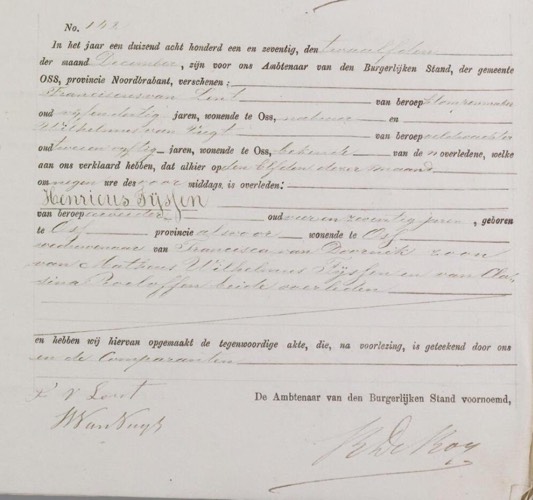 No. 142
In het jaar een duizend acht honderd een en zeventig, den twaalfden
der maand December, zijn voor ons Ambtenaar van den Burgerlijken Stand, der gemeente
OSS, provincie Noordbrabant, verschenen:
Franciscus van Lent van beroep klompenmaker
oud vijfendertig jaren, wonende te Oss, nabuur en
Wilhelmus van van beroep veldwachter
oud twee en vijftig jaren, wonende te Oss, bekende van de n overledene, welke
aan ons verklaard hebben, dat alhier op den elfden dezer maand
om negen ure des voor middags, is overleden:
Henricus Tijssen
van beroep oud vier en zeventig jaren, geboren
te Oss provincie alvoor wonende te Oss
weduwenaar van Francisca van zoon
van Matheus Wilhelmus Tijssen en van Cla-
sina Roeloffen beide overleden
en hebben wij hiervan opgemaakt de tegenwoordige akte, die, na voorlezing, is geteekend door ons
en de Comparanten
F v Lent
De Ambtenaar van den Burgerlijken Stand voornoemd,
W Van